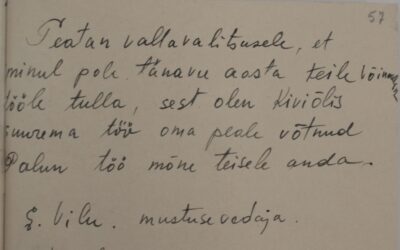 57
Teatan vallavalitsusele, et
minul pole tänavu aasta teile võimalik
tööle tulla, sest olen Kiviõlis
suurema töö oma peale võtnud
Palun töö mõne teisele anda.
E. Vilu. mustusevedaja.